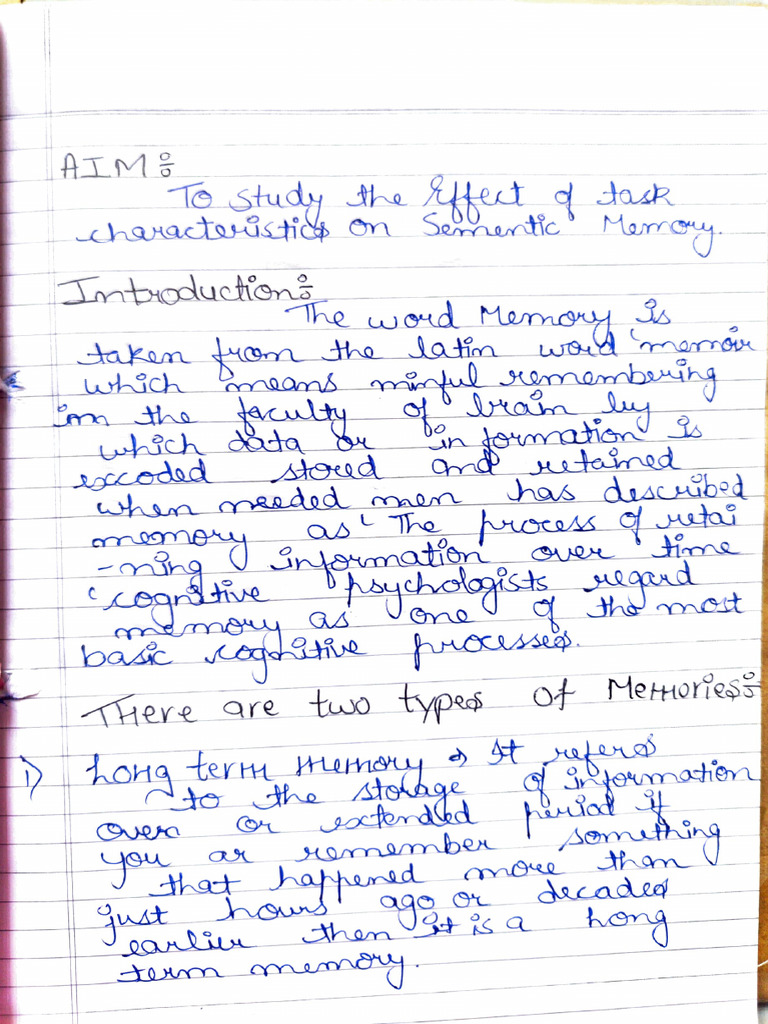 AIM:
To study the Effect of task
characteristics on Sementic Memory.
Introduction:
The word Memory is
taken from the latin word 'memoir
which means minful remembering
im the faculty of brain by
which data or information is
excoded stored and retained
when needed men has described
memory as ' The process of retai
-ning information over time
' cognitive psychologists regard
memory as one of the most
basic cognitive processes.
There are two types of Memories:
1) Long term memory → It refers
to the storage of information
over or extended period if
you ar remember something
that happened more than
just hours ago or decades
earlier then it is a long
term memory.